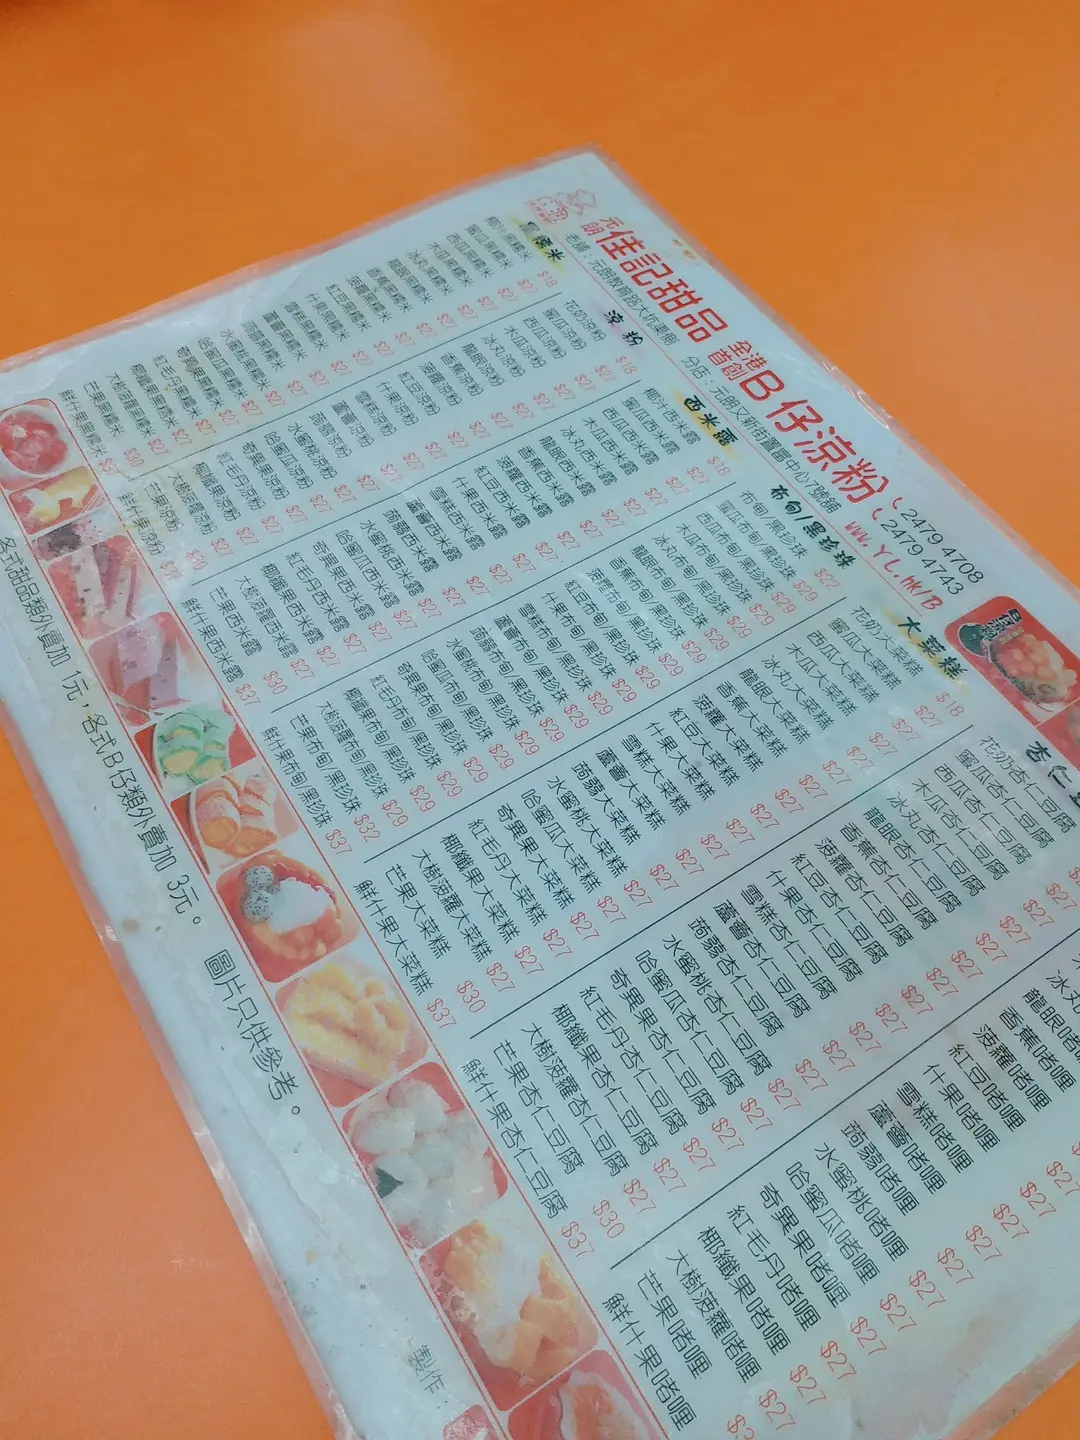 元朗 佳記甜品 全港首創 B仔涼粉
老舖：元朗教育路大坑渠側
分店：元朗又新街置富中心7號舖
2479 4708
2479 4743
WWW.YL.HK/B
黑糯米
椰汁黑糯米 $18
蜜瓜黑糯米 $27
西瓜黑糯米 $27
木瓜黑糯米 $27
冰丸黑糯米 $27
龍眼黑糯米 $27
香蕉黑糯米 $27
菠蘿黑糯米 $27
紅豆黑糯米 $27
什果黑糯米 $27
雪糕黑糯米 $27
蘆薈黑糯米 $27
蒟蒻黑糯米 $27
水蜜桃黑糯米 $27
哈蜜瓜黑糯米 $27
奇異果黑糯米 $27
紅毛丹黑糯米 $27
椰纖果黑糯米 $27
大樹菠蘿黑糯米 $27
芒果黑糯米 $30
鮮什果黑糯米
涼粉
花奶涼粉 $18
蜜瓜涼粉 $27
西瓜涼粉 $27
木瓜涼粉 $27
冰丸涼粉 $27
龍眼涼粉 $27
香蕉涼粉 $27
菠蘿涼粉 $27
紅豆涼粉 $27
什果涼粉 $27
雪糕涼粉 $27
蘆薈涼粉 $27
蒟蒻涼粉 $27
水蜜桃涼粉 $27
哈蜜瓜涼粉 $27
奇異果涼粉 $27
紅毛丹涼粉 $27
椰纖果涼粉 $27
大樹菠蘿涼粉 $27
芒果涼粉 $30
鮮什果涼粉
西米露
椰汁西米露 $18
蜜瓜西米露 $27
西瓜西米露 $27
木瓜西米露 $27
冰丸西米露 $27
龍眼西米露 $27
香蕉西米露 $27
菠蘿西米露 $27
紅豆西米露 $27
什果西米露 $27
雪糕西米露 $27
蘆薈西米露 $27
蒟蒻西米露 $27
水蜜桃西米露 $27
哈蜜瓜西米露 $27
奇異果西米露 $27
紅毛丹西米露 $27
椰纖果西米露 $27
大樹菠蘿西米露 $27
芒果西米露 $30
鮮什果西米露 $37
布甸/黑珍珠
布甸/黑珍珠 $22
蜜瓜布甸/黑珍珠 $29
西瓜布甸/黑珍珠 $29
木瓜布甸/黑珍珠 $29
冰丸布甸/黑珍珠 $29
龍眼布甸/黑珍珠 $29
香蕉布甸/黑珍珠 $29
菠蘿布甸/黑珍珠 $29
紅豆布甸/黑珍珠 $29
什果布甸/黑珍珠 $29
雪糕布甸/黑珍珠 $29
蘆薈布甸/黑珍珠 $29
蒟蒻布甸/黑珍珠 $29
水蜜桃布甸/黑珍珠 $29
哈蜜瓜布甸/黑珍珠 $29
奇異果布甸/黑珍珠 $29
紅毛丹布甸/黑珍珠 $29
椰纖果布甸/黑珍珠 $29
大樹菠蘿布甸/黑珍珠 $29
芒果布甸/黑珍珠 $32
鮮什果布甸/黑珍珠 $37
大菜糕
花奶大菜糕 $18
蜜瓜大菜糕 $27
西瓜大菜糕 $27
木瓜大菜糕 $27
冰丸大菜糕 $27
龍眼大菜糕 $27
香蕉大菜糕 $27
菠蘿大菜糕 $27
紅豆大菜糕 $27
什果大菜糕 $27
雪糕大菜糕 $27
蘆薈大菜糕 $27
蒟蒻大菜糕 $27
水蜜桃大菜糕 $27
哈蜜瓜大菜糕 $27
奇異果大菜糕 $27
紅毛丹大菜糕 $27
椰纖果大菜糕 $27
大樹菠蘿大菜糕 $27
芒果大菜糕 $30
鮮什果大菜糕 $37
杏仁
花奶杏仁豆腐
蜜瓜杏仁豆腐 $27
西瓜杏仁豆腐 $27
木瓜杏仁豆腐 $27
冰丸杏仁豆腐 $27
龍眼杏仁豆腐 $27
香蕉杏仁豆腐 $27
菠蘿杏仁豆腐 $27
紅豆杏仁豆腐 $27
什果杏仁豆腐 $27
雪糕杏仁豆腐 $27
蘆薈杏仁豆腐 $27
蒟蒻杏仁豆腐 $27
水蜜桃杏仁豆腐 $27
哈蜜瓜杏仁豆腐 $27
奇異果杏仁豆腐 $27
紅毛丹杏仁豆腐 $27
椰纖果杏仁豆腐 $27
大樹菠蘿杏仁豆腐 $27
芒果杏仁豆腐 $30
鮮什果杏仁豆腐 $37
冰丸
龍眼啫喱
香蕉啫喱
菠蘿啫喱
紅豆啫喱 $27
什果啫喱 $27
雪糕啫喱 $27
蘆薈啫喱 $27
蒟蒻啫喱 $27
水蜜桃啫喱 $27
哈蜜瓜啫喱 $27
奇異果啫喱 $27
紅毛丹啫喱 $27
椰纖果啫喱 $27
大樹菠蘿啫喱 $27
芒果啫喱
鮮什果啫喱
各式甜品類外賣加 1元，各式B仔類外賣加 3元。 圖片只供參考。
製作